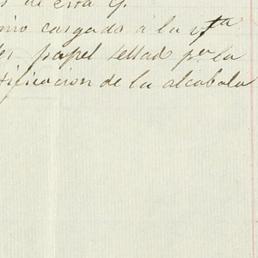 de esta
cargado a la vta
papel sellad pa la
tificacion de la alcabala